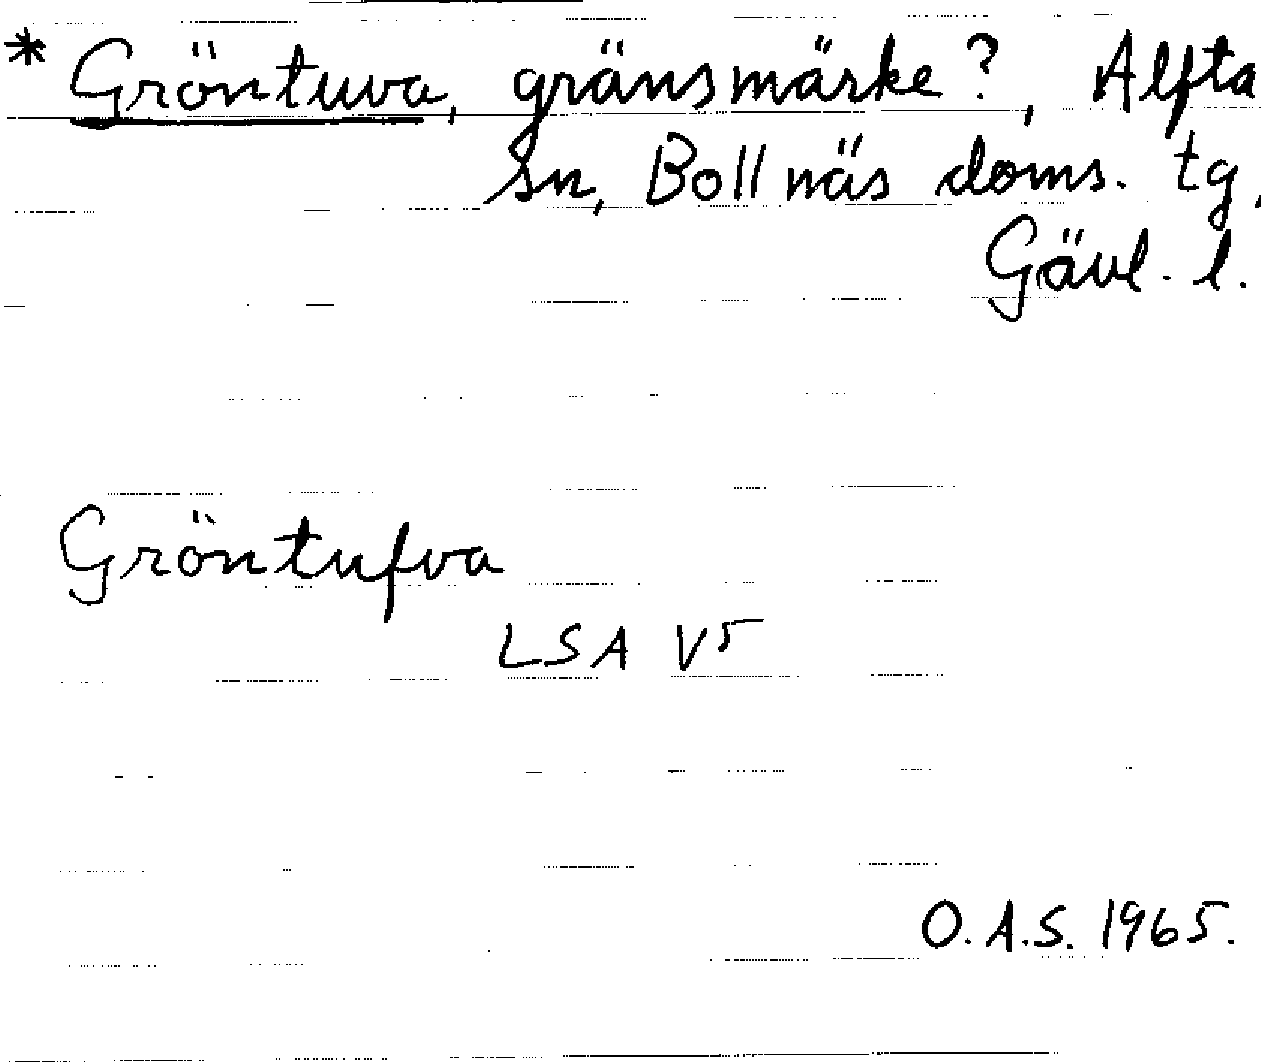 * Gröntuva, gränsmärke?, Alfta
sn, Bollnäs doms. tg,
Gävl. l.
Gröntufva
LSA V5
O.A.S. 1965.